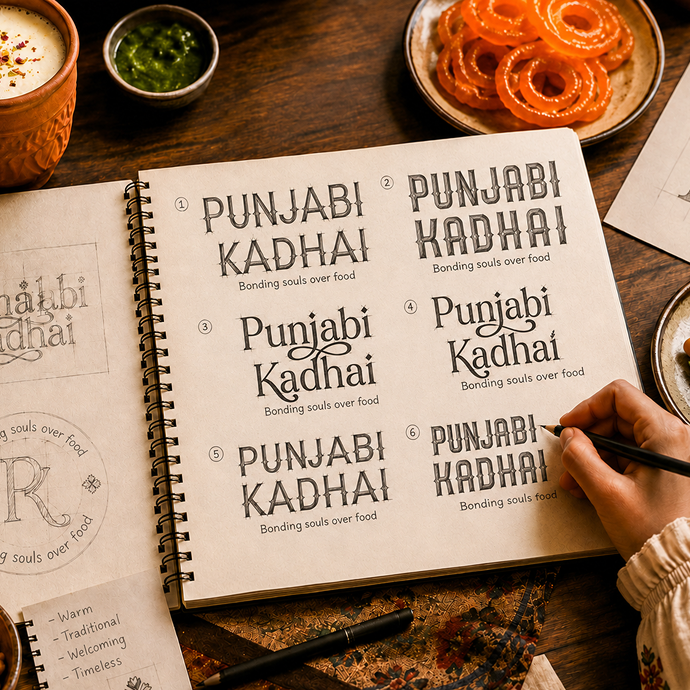 adhai
ng souls over food
R
ng souls over food
- Warm
- Traditional
- Welcoming
- Timeless
1
PUNJABI
KADHAI
Bonding souls over food
2
PUNJABI
KADHAI
Bonding souls over food
3
Punjabi
Kadhai
Bonding souls over food
4
Punjabi
Kadhai
Bonding souls over food
5
PUNJABI
KADHAI
Bonding souls over food
6
PUNJABI
KADHAI
Bonding souls food